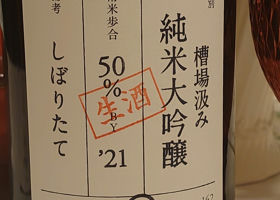 別
槽場汲み
純米大吟醸
米歩合
50%
BY
'21
生酒
考
しぼりたて